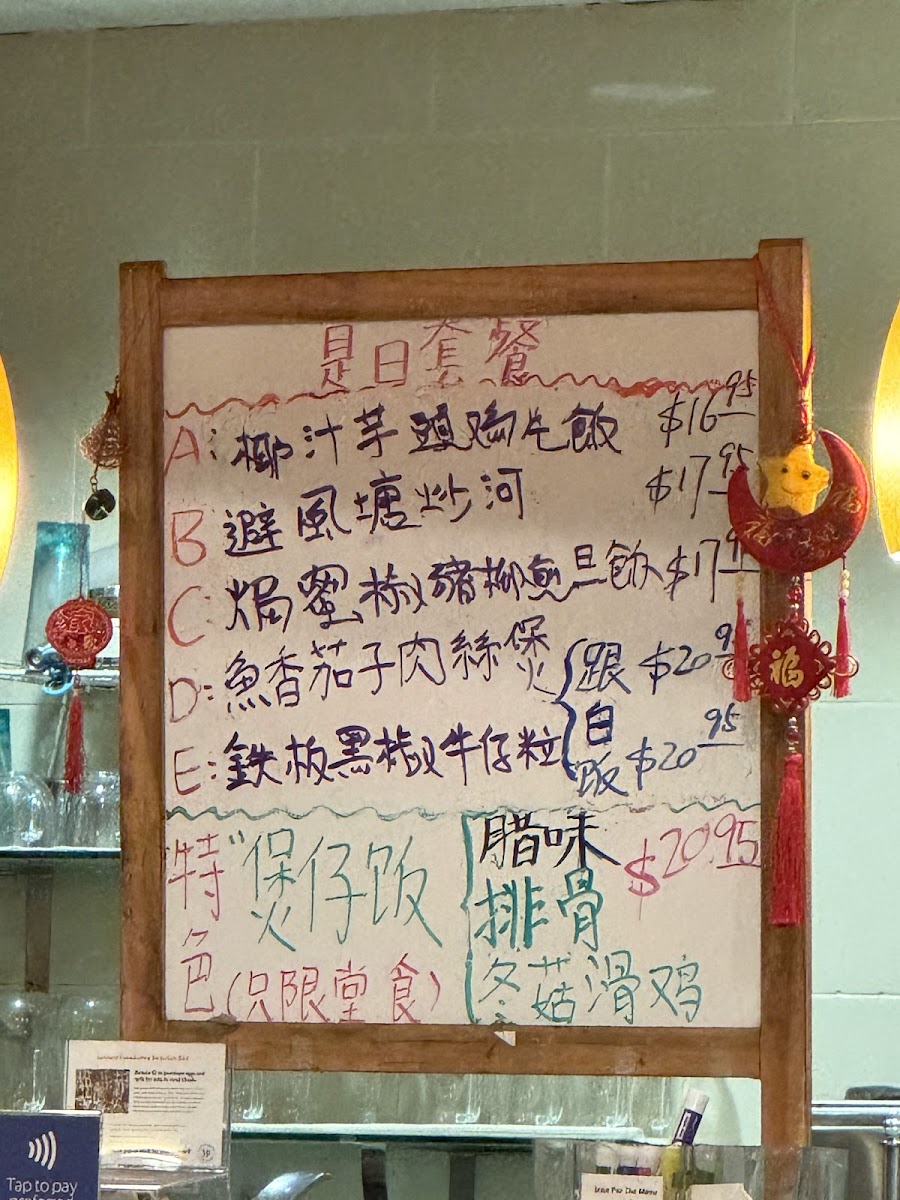 是日套餐
A: 椰汁芋頭鸡片飯 $16.95
B 避風塘炒河 $17.95
C: 焗蜜椒豬柳魚旦飯 $17
D: 魚香茄子肉絲煲 跟 $20.9
白
E: 鉄板黑椒牛仔粒 飯 $20.95
"特色" 煲仔饭 腊味 $20.95
排骨
(只限堂食) 冬菇滑鸡
福
Tap to pay